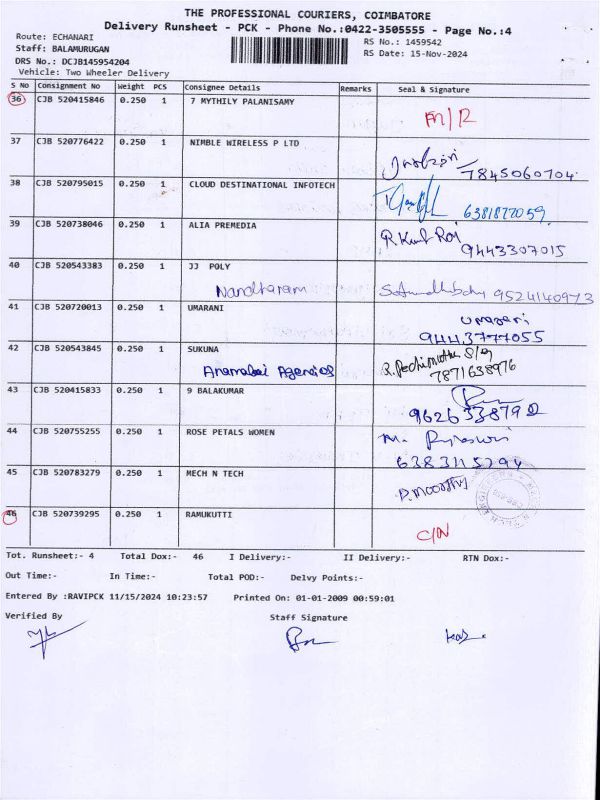 THE PROFESSIONAL COURIERS, COIMBATORE
Delivery Runsheet - PCK - Phone No.:0422-3505555 - Page No.:4
Route: ECHANARI
RS No.: 1459542
Staff: BALAMURUGAN
RS Date: 15-Nov-2024
DRS No.: DCJB145954204
Vehicle: Two Wheeler Delivery
S No Consignment No Weight PCS Consignee Details Remarks Seal & Signature
36 CJB 520415846 0.250 1 7 MYTHILY PALANISAMY
37 CJB 520776422 0.250 1 NIMBLE WIRELESS P LTD
7845060704
38 CJB 520795015 0.250 1 CLOUD DESTINATIONAL INFOTECH
6381872059
39 CJB 520738046 0.250 1 ALIA PREMEDIA
9443307015
40 CJB 520543383 0.250 1 JJ POLY
Nandharam 9524140973
41 CJB 520720013 0.250 1 UMARANI
9443777055
42 CJB 520543845 0.250 1 SUKUNA
7871638976
43 CJB 520415833 0.250 1 9 BALAKUMAR
44 CJB 520755255 0.250 1 ROSE PETALS WOMEN
45 CJB 520783279 0.250 1 MECH N TECH
P. Moorthy
46 CJB 520739295 0.250 1 RAMUKUTTI
C/N
Tot. Runsheet:- 4 Total Dox:- 46 I Delivery:- II Delivery:- RTN Dox:-
Out Time:- In Time:- Total POD:- Delvy Points:-
Entered By :RAVIPCK 11/15/2024 10:23:57 Printed On: 01-01-2009 00:59:01
Verified By Staff Signature